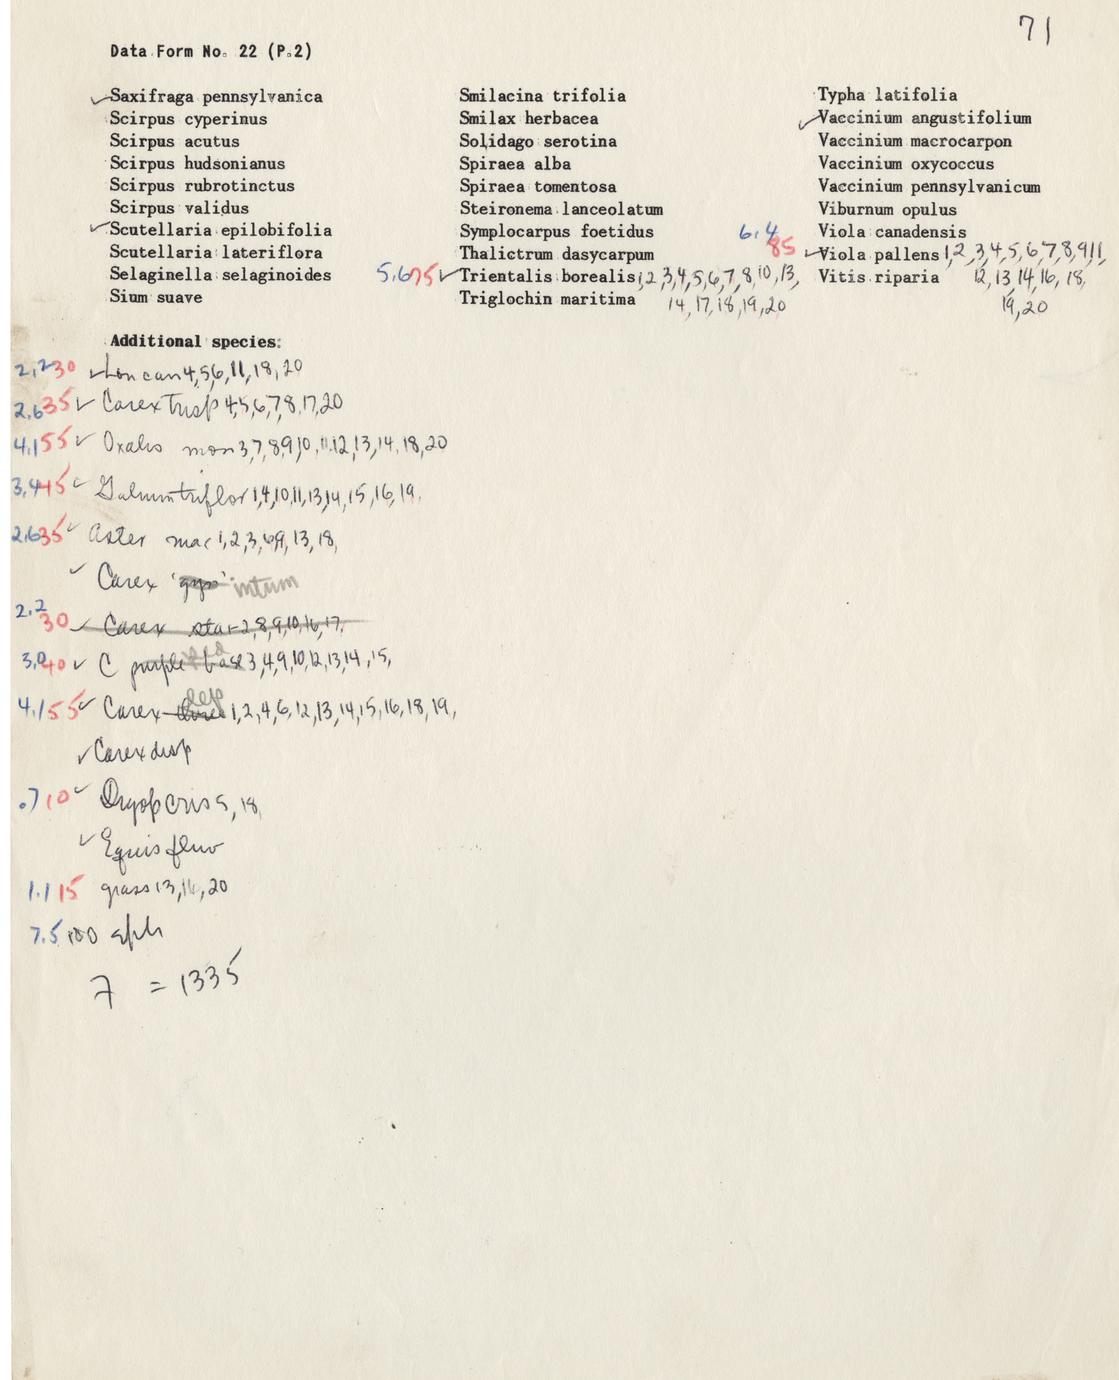 71
Data Form No. 22 (P.2)
Saxifraga pennsylvanica
Scirpus cyperinus
Scirpus acutus
Scirpus hudsonianus
Scirpus rubrotinctus
Scirpus validus
Scutellaria epilobifolia
Scutellaria lateriflora
Selaginella selaginoides
Sium suave
Smilacina trifolia
Smilax herbacea
Solidago serotina
Spiraea alba
Spiraea tomentosa
Steironema lanceolatum
Symplocarpus foetidus
Thalictrum dasycarpum
5.6 75 Trientalis borealis 1,2,3,4,5,6,7,8,10,13,
14,17,18,19,20
Triglochin maritima
Typha latifolia
Vaccinium angustifolium
Vaccinium macrocarpon
Vaccinium oxycoccus
Vaccinium pennsylvanicum
Viburnum opulus
Viola canadensis
6.4 85 Viola pallens 1,2,3,4,5,6,7,8,9,11,
12,13,14,16,18,
19,20
Vitis riparia
Additional species:
2.2 30 Lon can 4,5,6,11,18,20
2.6 35 Carex trisp 4,5,6,7,8,17,20
4.1 55 Oxalis mon 3,7,8,9,10,11,12,13,14,18,20
3.4 45 Galium triflor 1,4,10,11,13,14,15,16,19.
2.6 35 Aster mac 1,2,3,6,9,13,18,
Carex intum
2.2 30 Carex star 2,8,9,10,16,17.
3.0 40 C purple base 3,4,9,10,12,13,14,15,
4.1 55 Carex lep 1,2,4,6,12,13,14,15,16,18,19,
Carex disp
.7 10 Dryop cris 5,18,
Equis fluv
1.1 15 grass 13,16,20
7.5 100 sph
7 = 1335